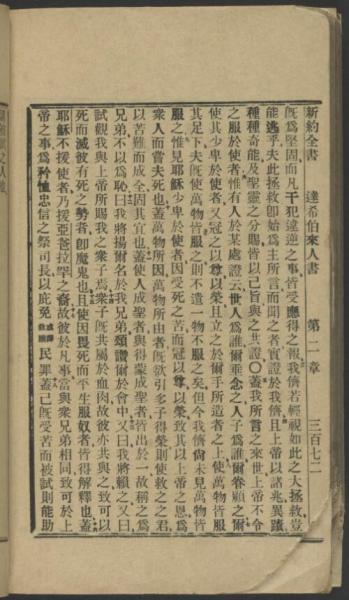 新約全書　達希伯來人書　第二章　三百七二
既爲堅固而凡干犯違逆之事皆受應得之報我儕若輕視如此之大拯救豈
能逃乎夫此拯救卽始爲主所言而聞之者實證於我儕且上帝以諸兆異蹟
種種奇能及聖靈之分賜皆以己旨與之共證〇蓋我所言之來世上帝不令
之服於使者惟有人於某處證云世人爲誰爾垂念之人子爲誰爾眷顧之爾
使其少卑於使者又冠之以尊以榮且立之於爾手所造者之上使萬物皆服
其足下夫旣使萬物皆服之則不遺一物不服之矣但今我儕尙未見萬物皆
服之惟見耶穌少卑於使者因受死之苦而冠以尊以榮致其以上帝之恩爲
衆人而嘗夫死也蓋萬物所因萬物所由者旣欲引多子得榮則使救之之君
以苦難而成全固其宜也蓋使人成聖者與得蒙成聖者皆出於一故稱之爲
兄弟不以爲恥曰我將揚爾名於我兄弟頌讚爾於會中又曰我將賴之又曰
試觀我與上帝所賜我之衆子焉衆子旣共屬於血肉故彼亦共與之致可以
死而滅彼有死之勢者卽魔鬼也且使因畏死而平生服奴者皆得解釋也蓋
耶穌不援使者乃援亞伯拉罕之裔故彼於凡事當與衆兄弟相同致可於上
帝之事爲矜恤忠信之祭司長以庇免民罪蓋己旣受苦而被試則能助